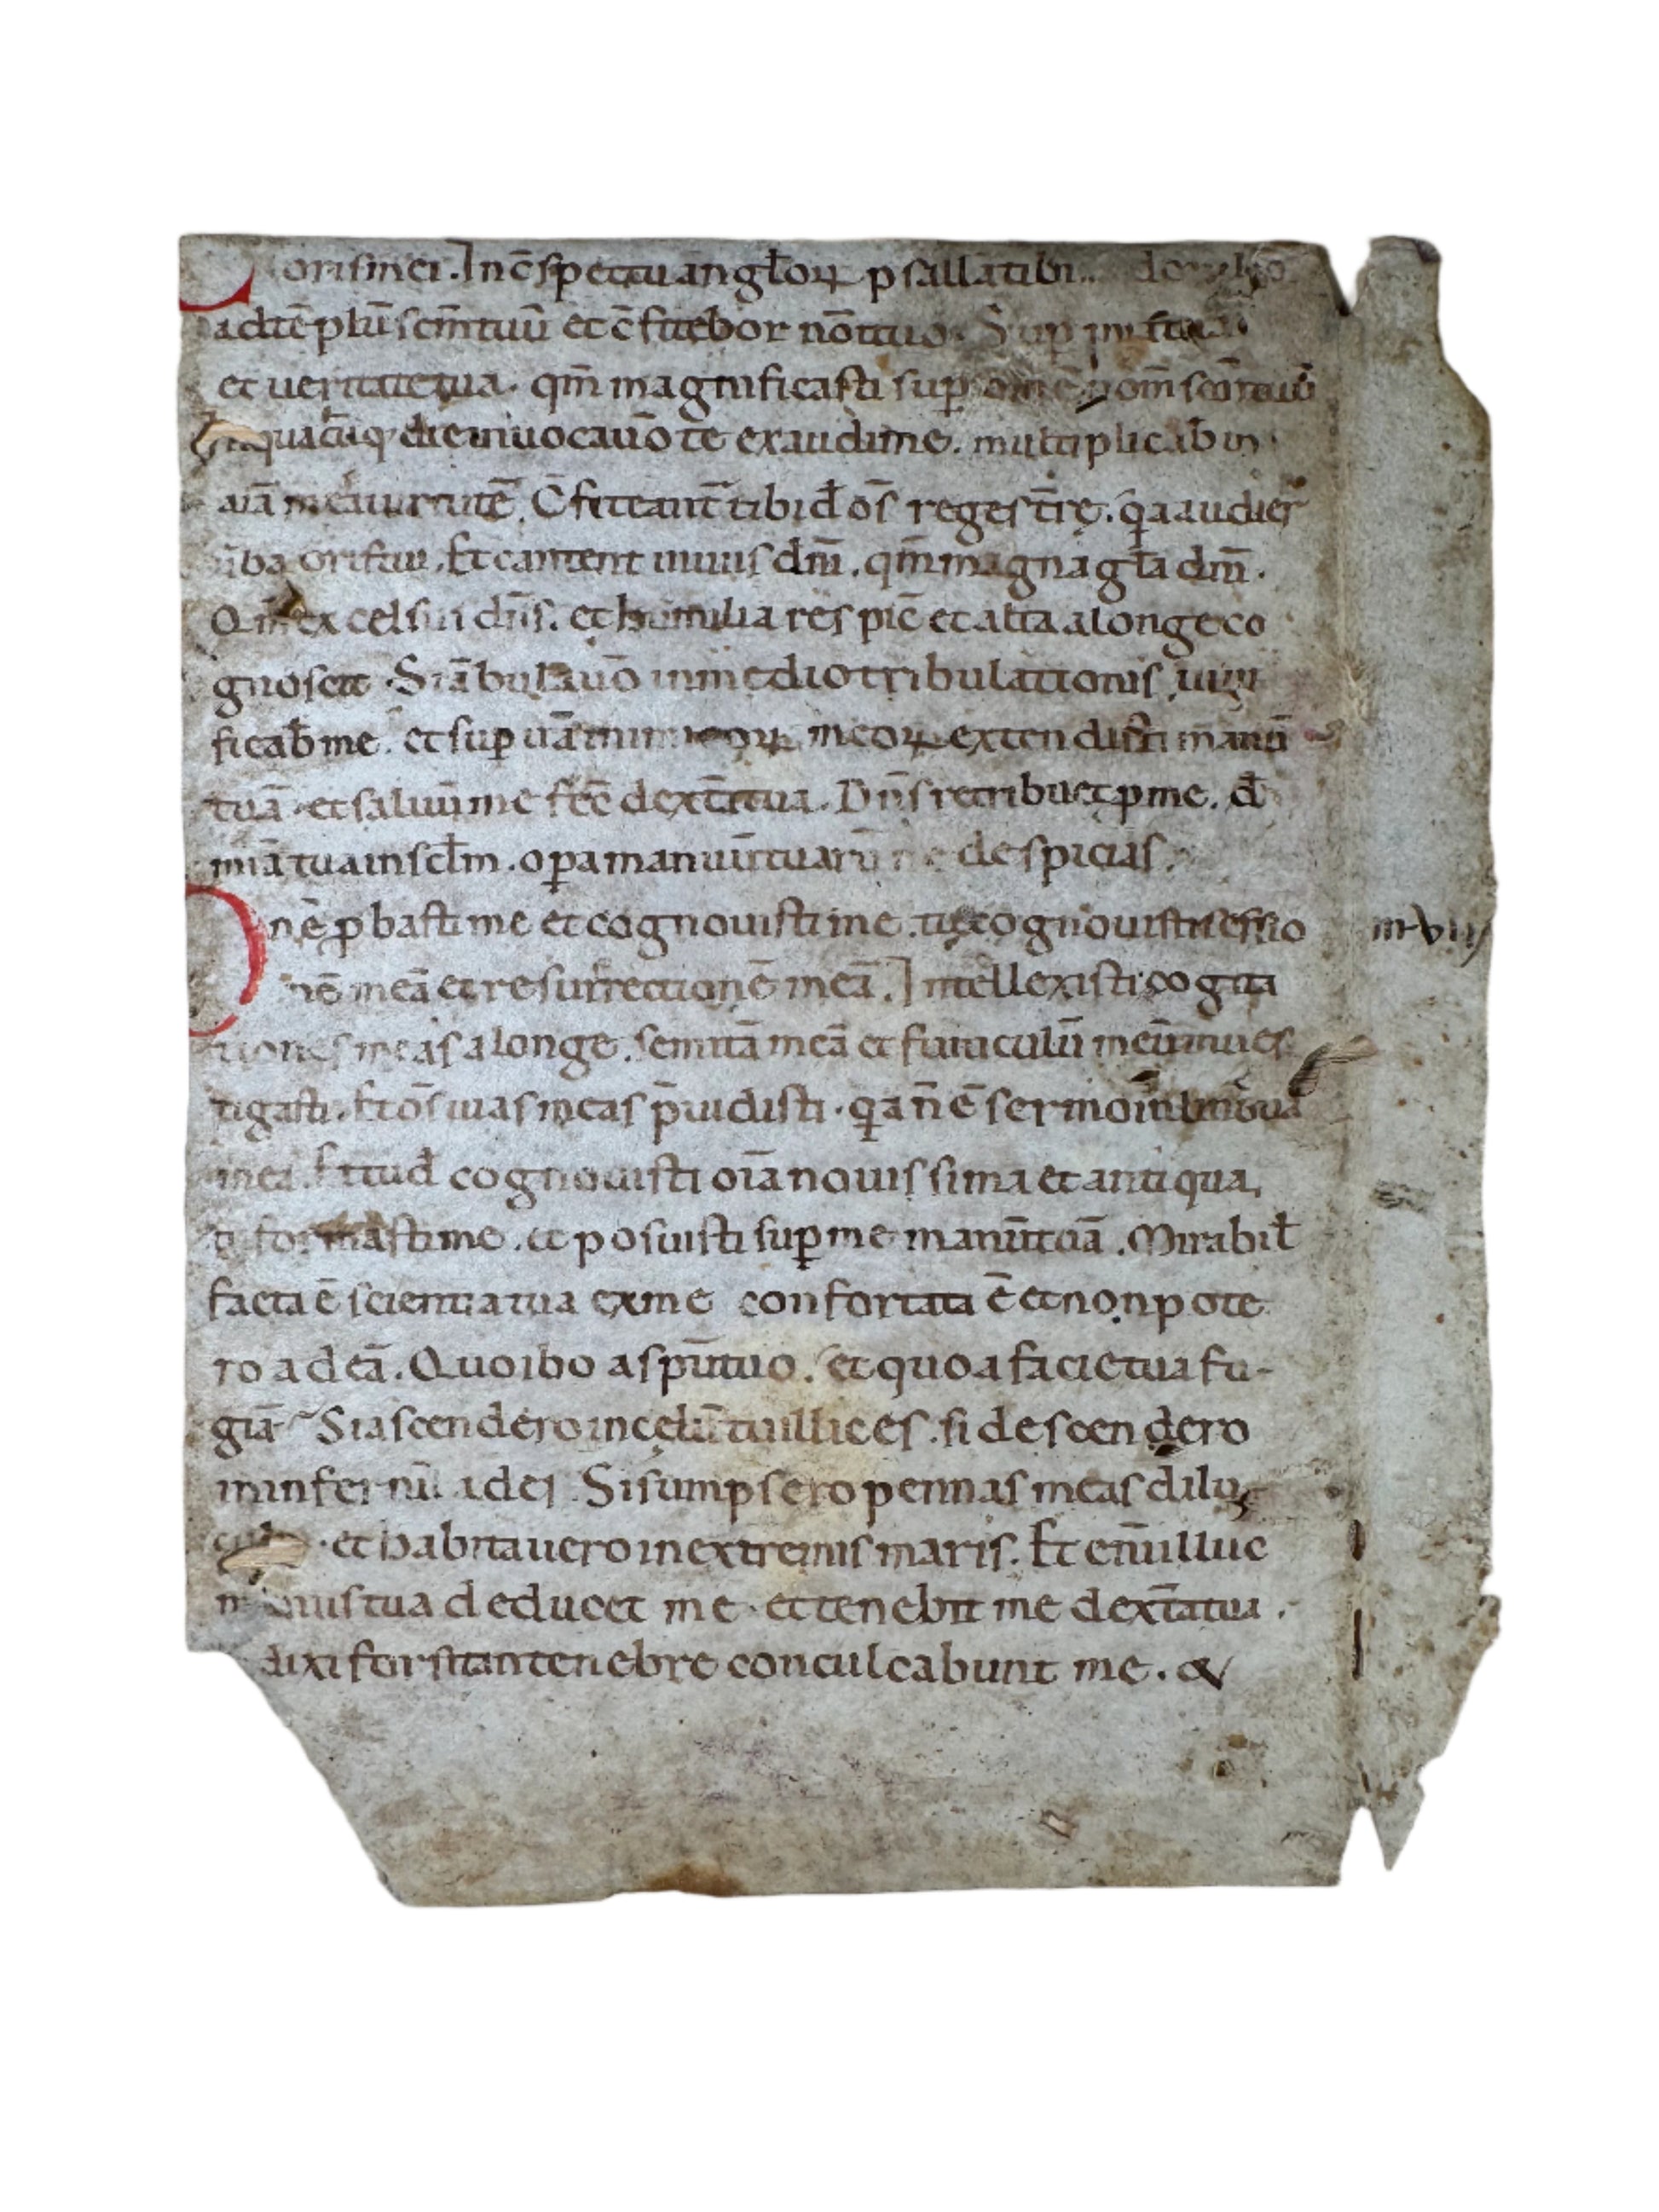 orismei. In c̄spectu angl̄oꝝ psallā tibi.
ad tē plū sc̄m tuū et c̄fitebor nōi tuo. Sup
et ueritate tua. qm̄ magnificasti sup om̄e nom̄ sc̄m tuū
quacūq die inuocauō te exaudi me. multiplicab̄ in
aīā meā uirtutē. C̄fiteant̄ tibi dn̄e om̄s reges t̄rę. q̄a audier̄
oris tui. Et cantent in uiis dn̄i. qm̄ magna gl̄a dn̄i.
Qm̄ excelsus dn̄s. et humilia respic̄ et alta a longe co
gnoscit. Si ābulauō in medio tribulationis uiui
ficab̄ me. et sup irā inimicoꝝ meoꝝ extendisti manū
tuā. et saluū me fec̄ dext̄a tua. Dn̄s retribuet p me. d̄
mīa tua in scl̄m. opa manuū tuarū ne despicias.
ne pbasti me et cognouisti me. tu cognouisti sessio
nē meā et resurrectionē meā. Intellexisti cogita
tiones meas a longe. semitā meā et funiculū meū inues
tigasti. Et om̄s uias meas p̄uidisti. q̄a n̄ ē sermo in lingua
mea. Et tu d̄ cognouisti oīa nouissima et antiqua,
tu formasti me. et posuisti sup me manū tuā. Mirabil̄
facta ē scientia tua ex me confortata ē et non pote
ro ad eā. Quo ibo a spū tuo. et quo a facie tua fu-
giā Si ascendero in cęlū tu illic es. si descendero
in infernū ades. Si sumpsero pennas meas dilu
et habitauero in extremis maris. Et enī illuc
manus tua deducet me. et tenebit me dext̄a tua.
dixi forsitan tenebre conculcabunt me. &